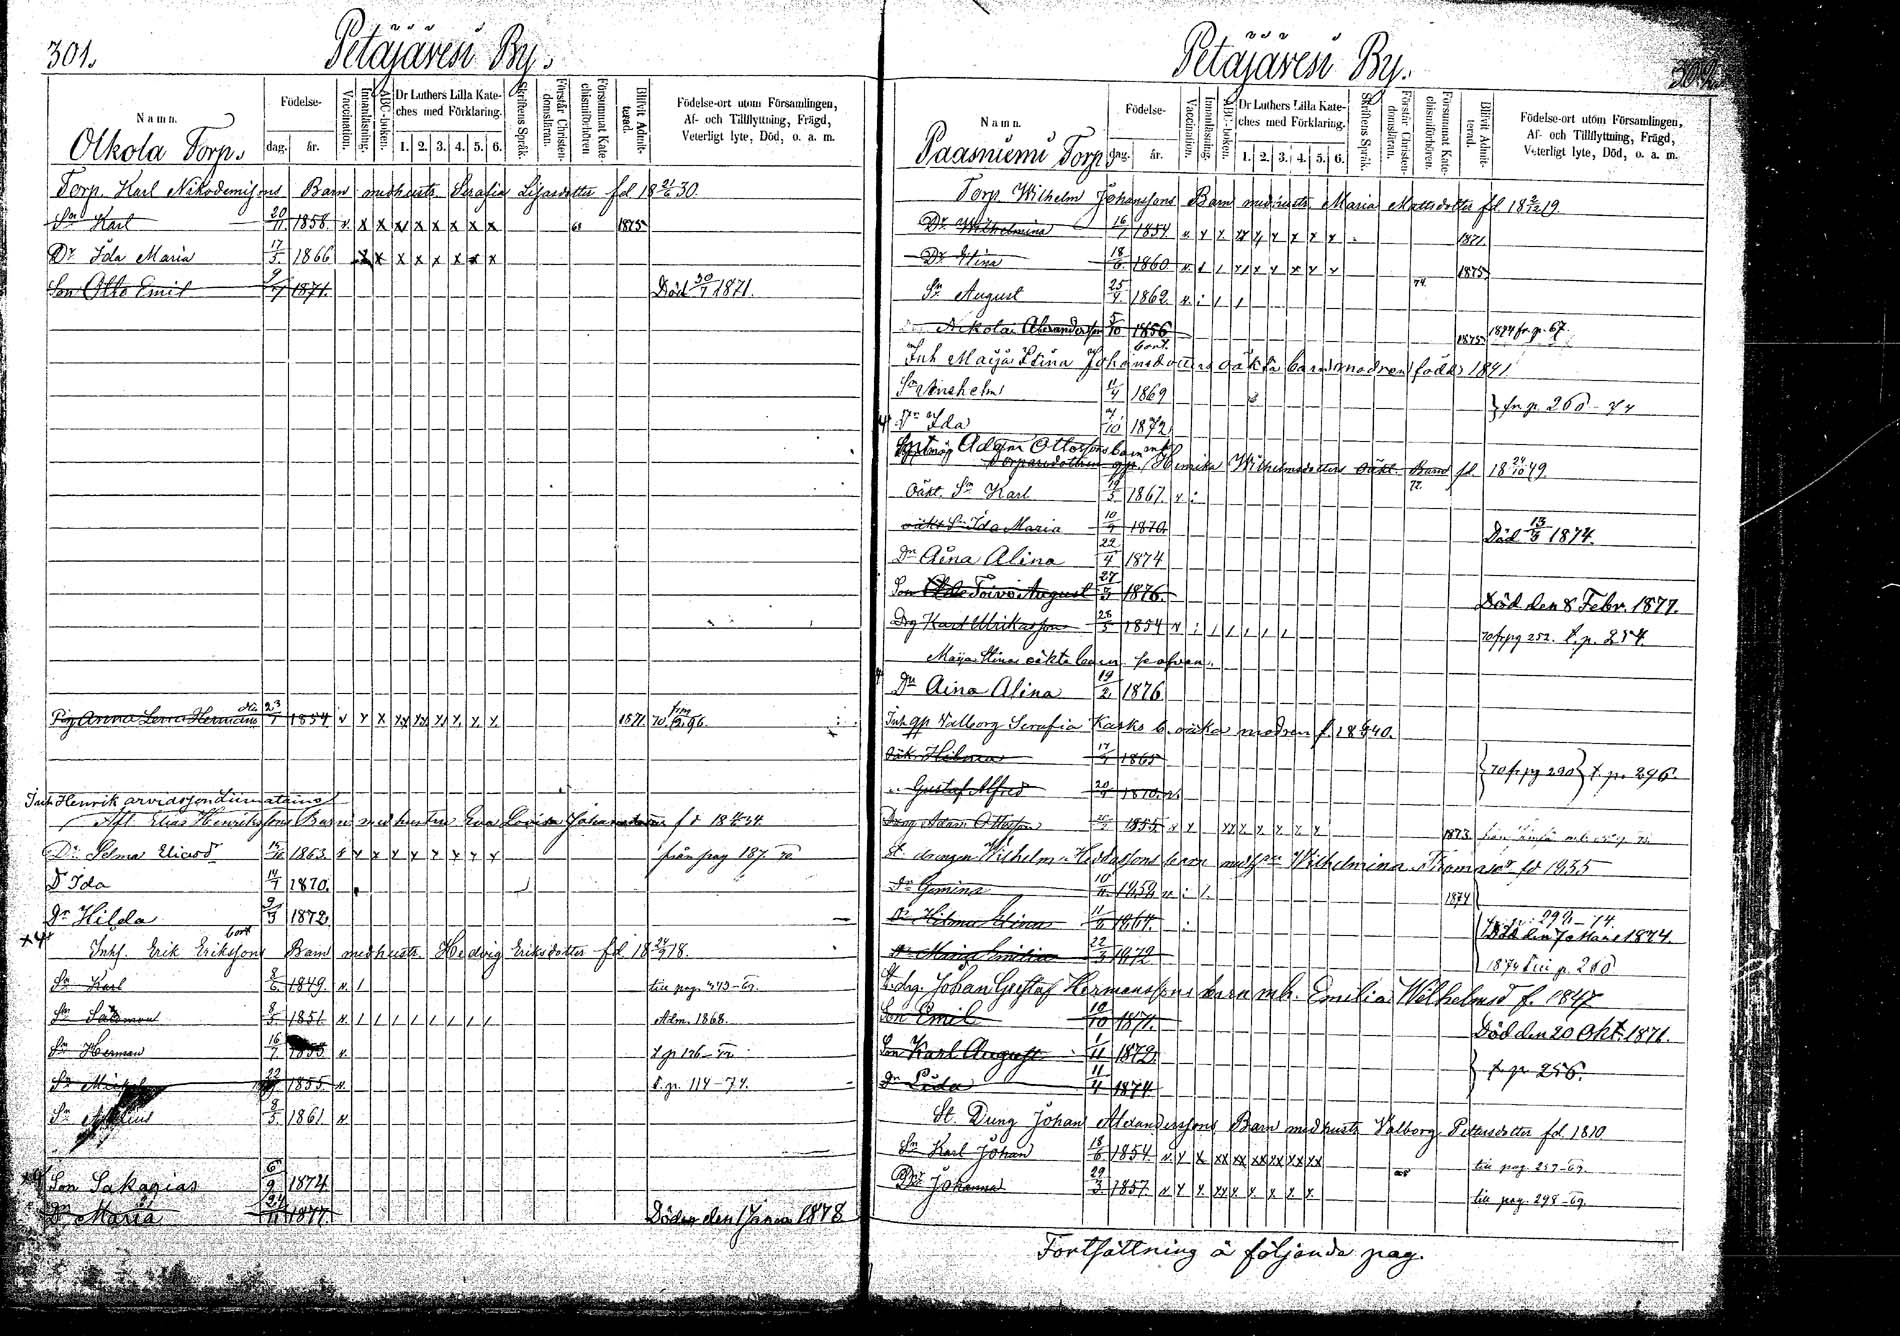 301.
Petäjävesi By.
Namn.
Födelse-
dag.
år.
Vaccination.
Innanläsning.
ABC-boken.
Dr Luthers Lilla Kate-
ches med Förklaring.
1. 2. 3. 4. 5. 6.
Skriftens Språk.
Förstår Christen-
domsläran.
Försummat Kate-
chismiförhören
Blifvit Admit-
terad.
Födelse-ort utom Församlingen,
Af- och Tillflyttning, Frägd,
Veterligt lyte, Död, o. a. m.
Olkola Torp.
Torp. Karl Nikodemissons Barn med hustr. Serafia Lisasdotter fd 18 21/6 30.
Sn Karl 20/11 1858. v. x x x x x x x x 1875
Dr Ida Maria 17/5 1866 x x x x x x x x
Son Otto Emil 9/7 1871. Död 30/7 1871.
Pig Anna Lena Hermans 23/7 1854 v x x xx xx x x x x 1871
Inh Henrik Arvidsson Liimatainen
Aft. Elias Henrikssons Barn med hustru Eva Lovisa Johansdotter fd 18 34
Dr Selma Eliasdr 15/10 1863. från pag 187. 70.
Dr Ida 14/7 1870.
Dr Hilda 9/3 1872.
bort
Inhs. Erik Erikssons Barn med hustr. Hedvig Eriksdotter fd 18 24/9 18.
Sn Karl 8/6 1849. v. 1 till pag. 443-69.
Sn Salomon 8/3 1851. v. 1 1 1 1 1 1 1 1 Adm. 1868.
Sn Herman 16/7 1853 v.
Sn Mickel 22 1855. v. t. p. 114-74.
Sn 8/3 1861. v.
Son Sakarias 6/9 1874
Dr Maria 24/11 1877. Död den 1 Janua 1878
Petäjävesi By.
302.
Namn.
Födelse-
dag.
år.
Vaccination.
Innanläsning.
ABC-boken.
Dr Luthers Lilla Kate-
ches med Förklaring.
1. 2. 3. 4. 5. 6.
Skriftens Språk.
Förstår Christen-
domsläran.
Försummat Kate-
chismiförhören.
Blifvit Admit-
terad.
Födelse-ort utom Församlingen,
Af- och Tillflyttning, Frägd,
Veterligt lyte, Död, o. a. m.
Paasniemi Torp
Torp. Wilhelm Johanssons Barn med hustr. Maria Mattsdotter fd. 18 2/12 19.
Dr Wilhelmina 16/7 1854 1871.
Dr Stina 18/6 1860 1875
Sn August 25/4 1862. v. : 1 1 74
Nikolai Alexandersson 5/10 1856 1875 1874 fr. p. 67.
bort.
Inh Maija Stina Johansdotters oäkta barn modren född 1841
Sn Anshelm 11/4 1869 } fr. p. 260-74
Dr Ida 7/10 1872
Adam Ottossons barn mh
Henrika Wilhelmsdotters oäkt. Barn fd. 18 24/10 49.
Oäkt. Sn Karl 19/3 1867. v :
Ida Maria 10/9 1870 Död 13/3 1874.
Dr Aina Alina 22/4 1874
Son Toivo August 27/3 1876. Död den 8 Febr. 1877.
Drg Karl Ulrikasson 28/5 1854 v : 1 1 1 1 1 70 fr pg 252. t. p. 254.
Maija Stinas oäkta barn
Dr Aina Alina 19/2 1876
Inh qp Valborg Serafia Kasks b. oäkta modren f. 18 40.
oäk. Hilma 17/4 1865 } 70 fr pg 290 } t. p. 296.
Gustaf Alfred 20/4 1870.
Dreng Adam Ottosson 1855. 1873.
St. drengen Wilhelm Heddassons barn med hustr Wilhelmina Thomasdr fd 1835
Dr Gemina 10/11 1859 v. : 1. 1874
Dr Hilma Stina 11/6 1864. t. p. 292-74.
Död den 7 Mars 1874.
Dr Maria Emilia 22/3 1872. 1874 till p. 260
St. drg. Johan Gustaf Hermanssons barn mh. Emilia Wilhelmsd f. 1847
Son Emil 10/10 1871. Död den 20 Okt. 1871.
Son Karl August 1/11 1872.
Dr Lida 11/4 1874 } t. p. 256.
St. Dreng Johan Alexanderssons Barn med hustr. Valborg Pettersdotter fd. 1810
Sn Karl Johan 18/6 1854. v. x x xx xx xx xx xx till pag. 257-69.
Dr Johanna 29/3 1857. till pag. 298-69.
Fortsättning å följande pag.